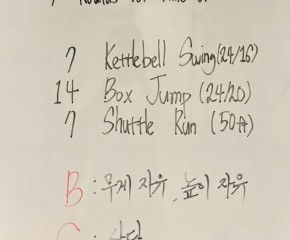 7 Rounds for Time of
7 Kettlebell Swing (24/16)
14 Box Jump (24/20)
7 Shuttle Run (50ft)
B : 무게 자유, 높이 자유